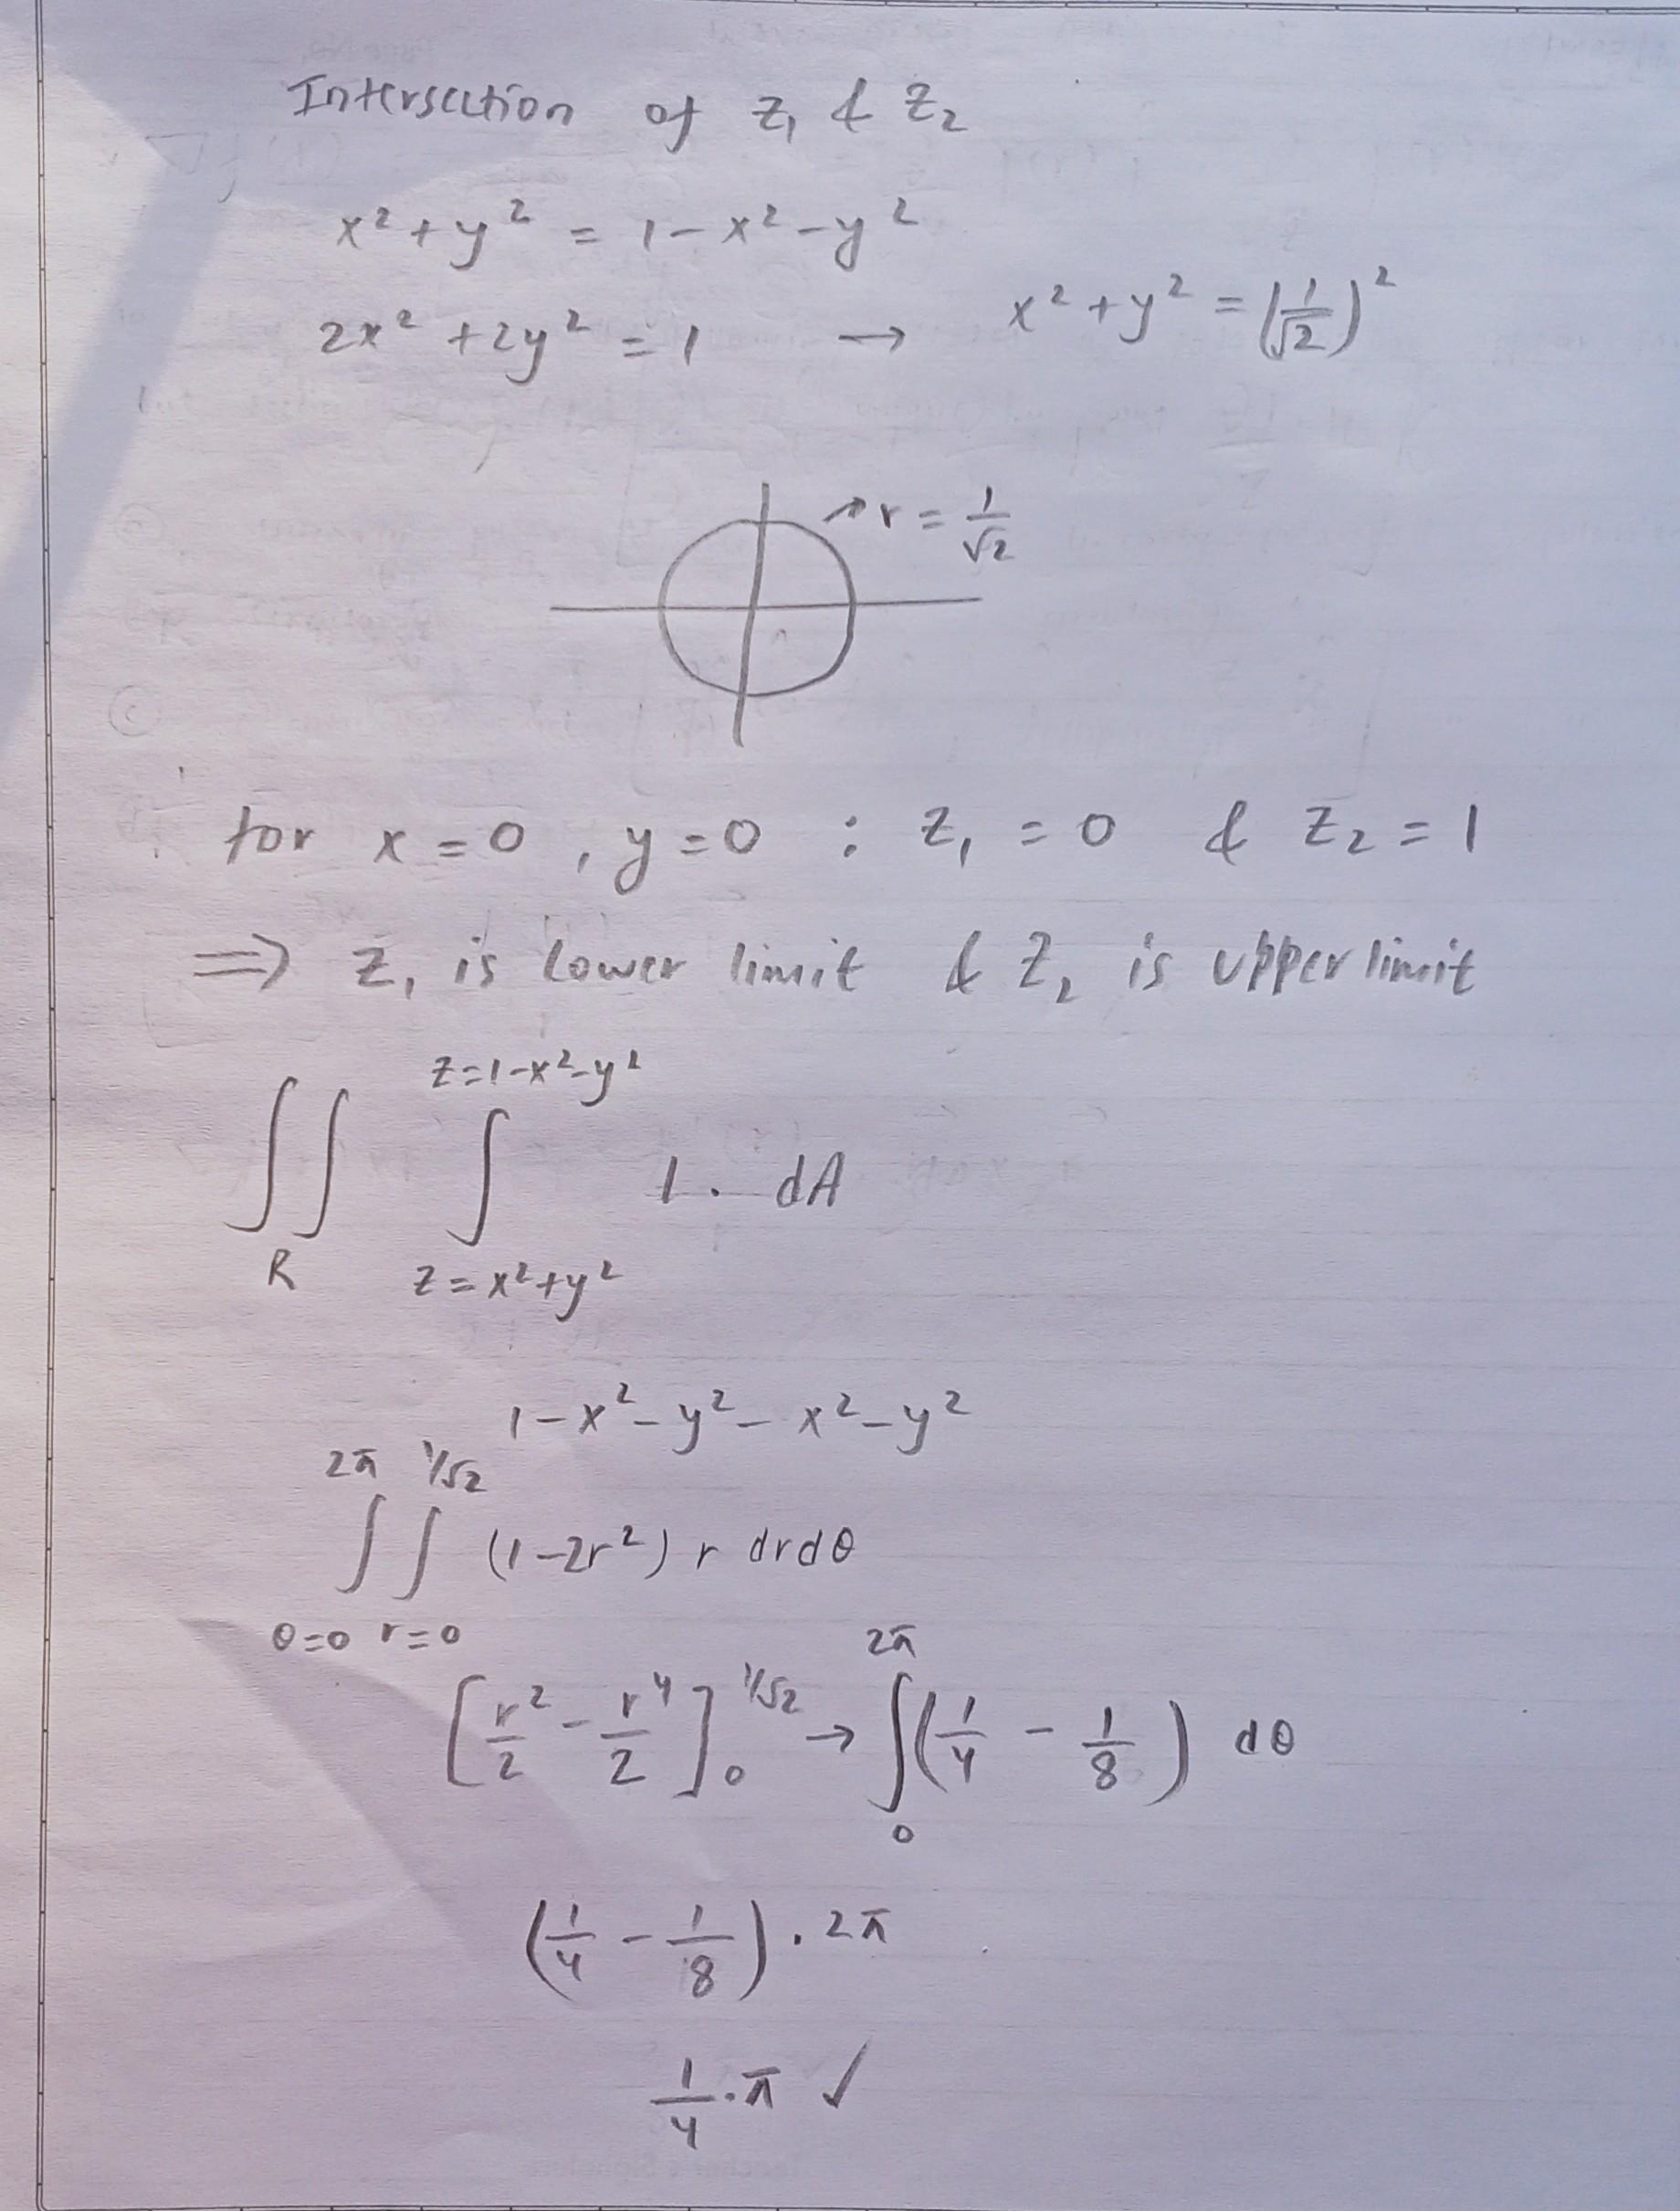 Intersection of z₁ & z₂
x² + y² = 1 - x² - y²
2x² + 2y² = 1 → x² + y² = (1/√2)²
r = 1/√2
for x = 0 , y = 0 : z₁ = 0 & z₂ = 1
⇒ z₁ is lower limit & z₂ is upper limit
z=1-x²-y²
∫∫ ∫ 1 . dA
R z = x²+y²
1 - x² - y² - x² - y²
2π 1/√2
∫ ∫ (1-2r²) r drdθ
θ=0 r=0
[r²/2 - r⁴/2]₀^(1/√2) → ∫₀^(2π) (1/4 - 1/8) dθ
(1/4 - 1/8) . 2π
1/4 . π ✓